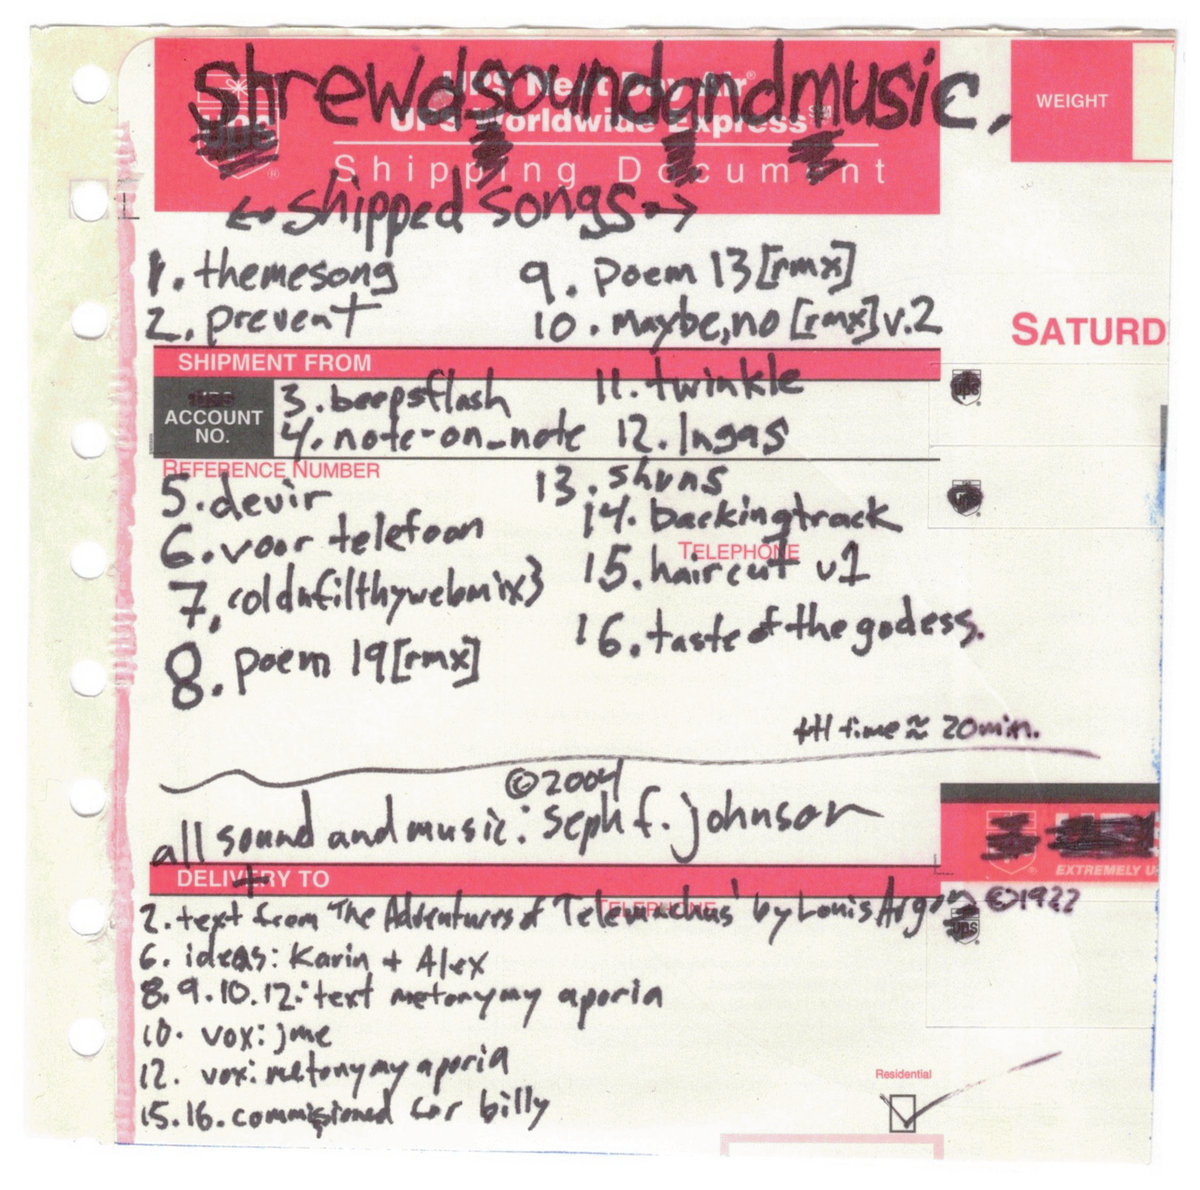 shrewdsoundandmusic,
UPS Next Day Air®
UPS Worldwide Express℠
Shipping Document
WEIGHT
← shipped songs →
1. themesong
2. prevent
9. poem 13 [rmx]
10. maybe, no [rmx] v.2
SATURD
SHIPMENT FROM
ACCOUNT
NO.
3. beepsflash
4. note-on_note
11. twinkle
12. lngas
REFERENCE NUMBER
5. devir
6. voor telefoon
7. coldnfilthywebmix3
8. poem 19 [rmx]
13. shvns
14. backingtrack
TELEPHONE
15. haircut v1
16. taste of the godess.
ttl time ≈ 20min.
©2004
all sound and music: Seph f. johnson
EXTREMELY U
DELIVERY TO
TELEPHONE
2. text from 'The Adventures of Telemachus' by Louis Aragon ©1922
6. ideas: Karin + Alex
8. 9. 10. 12.: text metonymy aporia
10. vox: jme
12. vox: metonymy aporia
15. 16. commisioned for billy
Residential